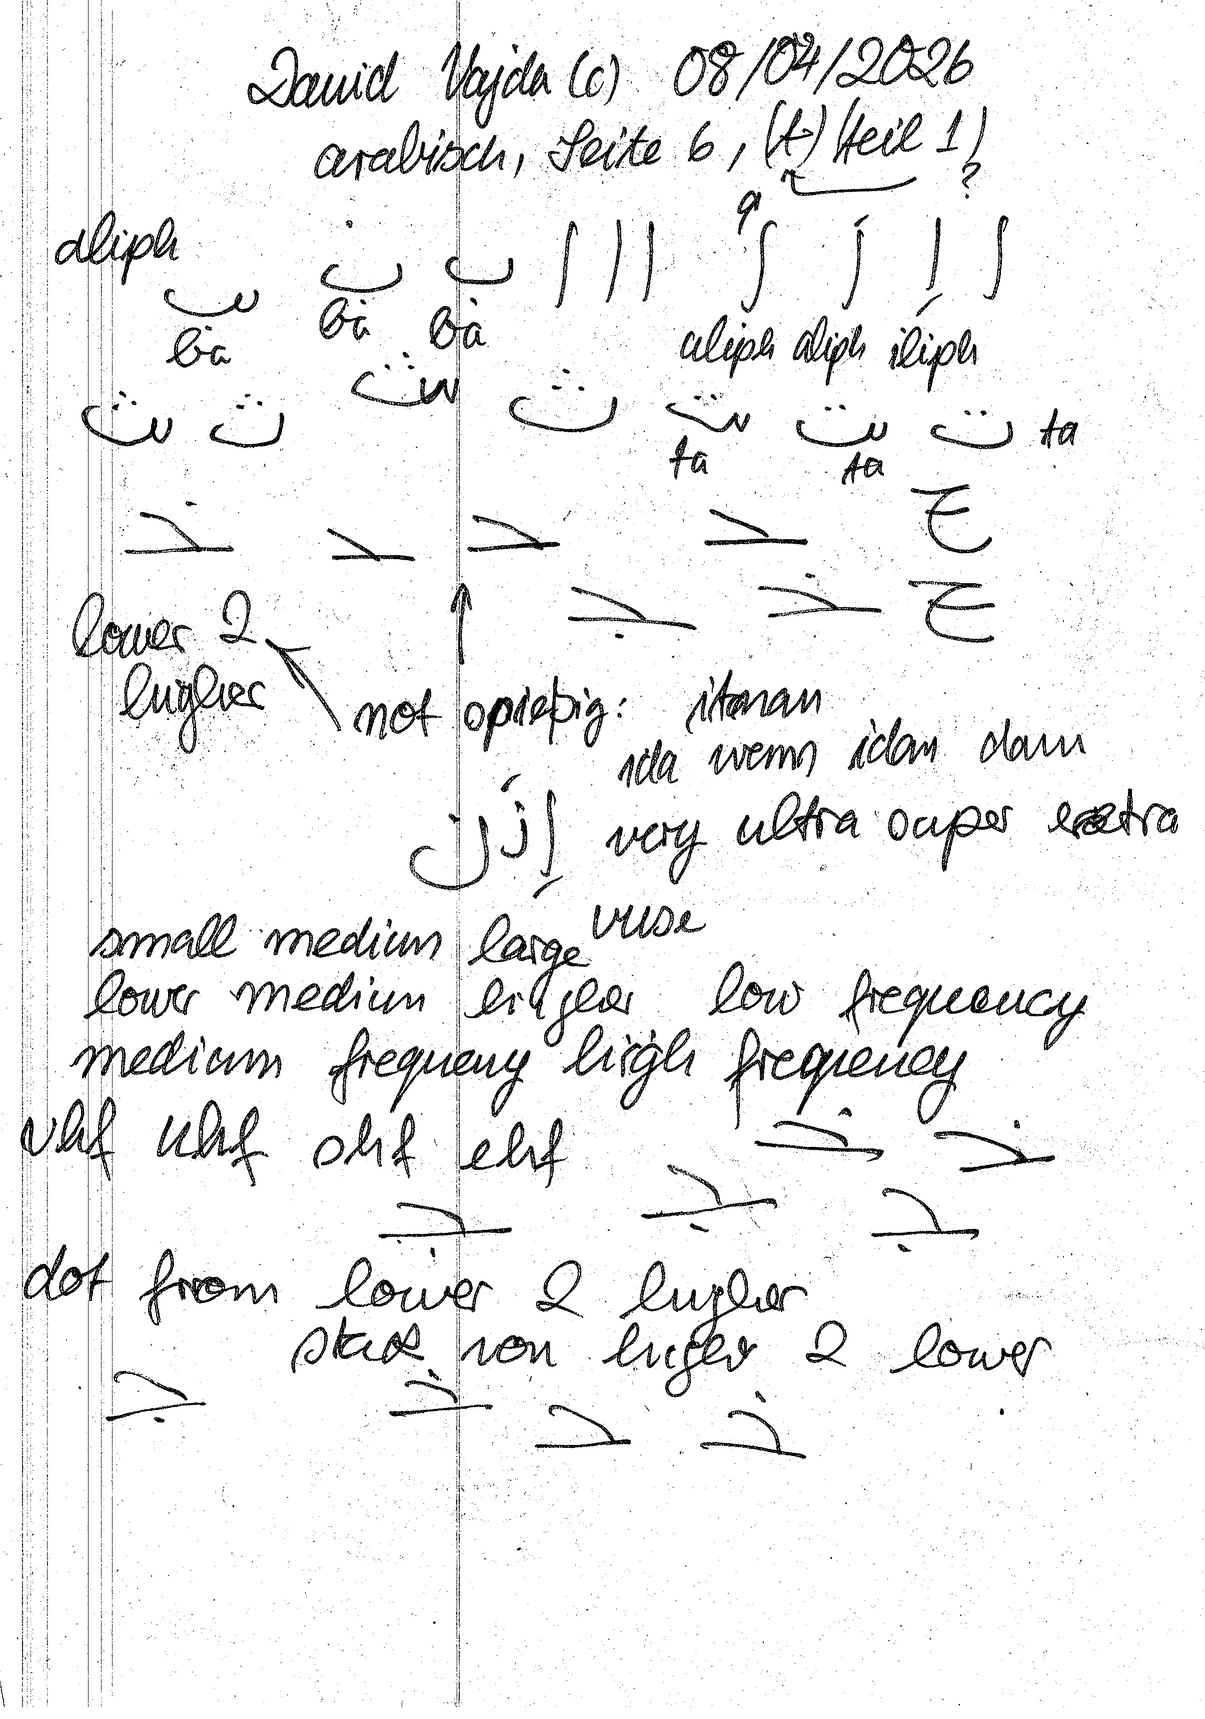 David Vajda (c) 08/04/2026
arabisch, Seite 6, (A) (teil 1)
?
aliph
ب ب ا ا ا ا ا إ ا
bà bà bà aliph aliph iliph
ث ث ث ت ت ت ta
ta ta
ح
ح
lower 2
higher
not itman
ida wenn idan dann
إذن very ultra super extra
small medium large
lower medium higher low frequency
medium frequeny high frequency
vhf uhf shf ehf
dot from lower 2 higher
von higer 2 lower